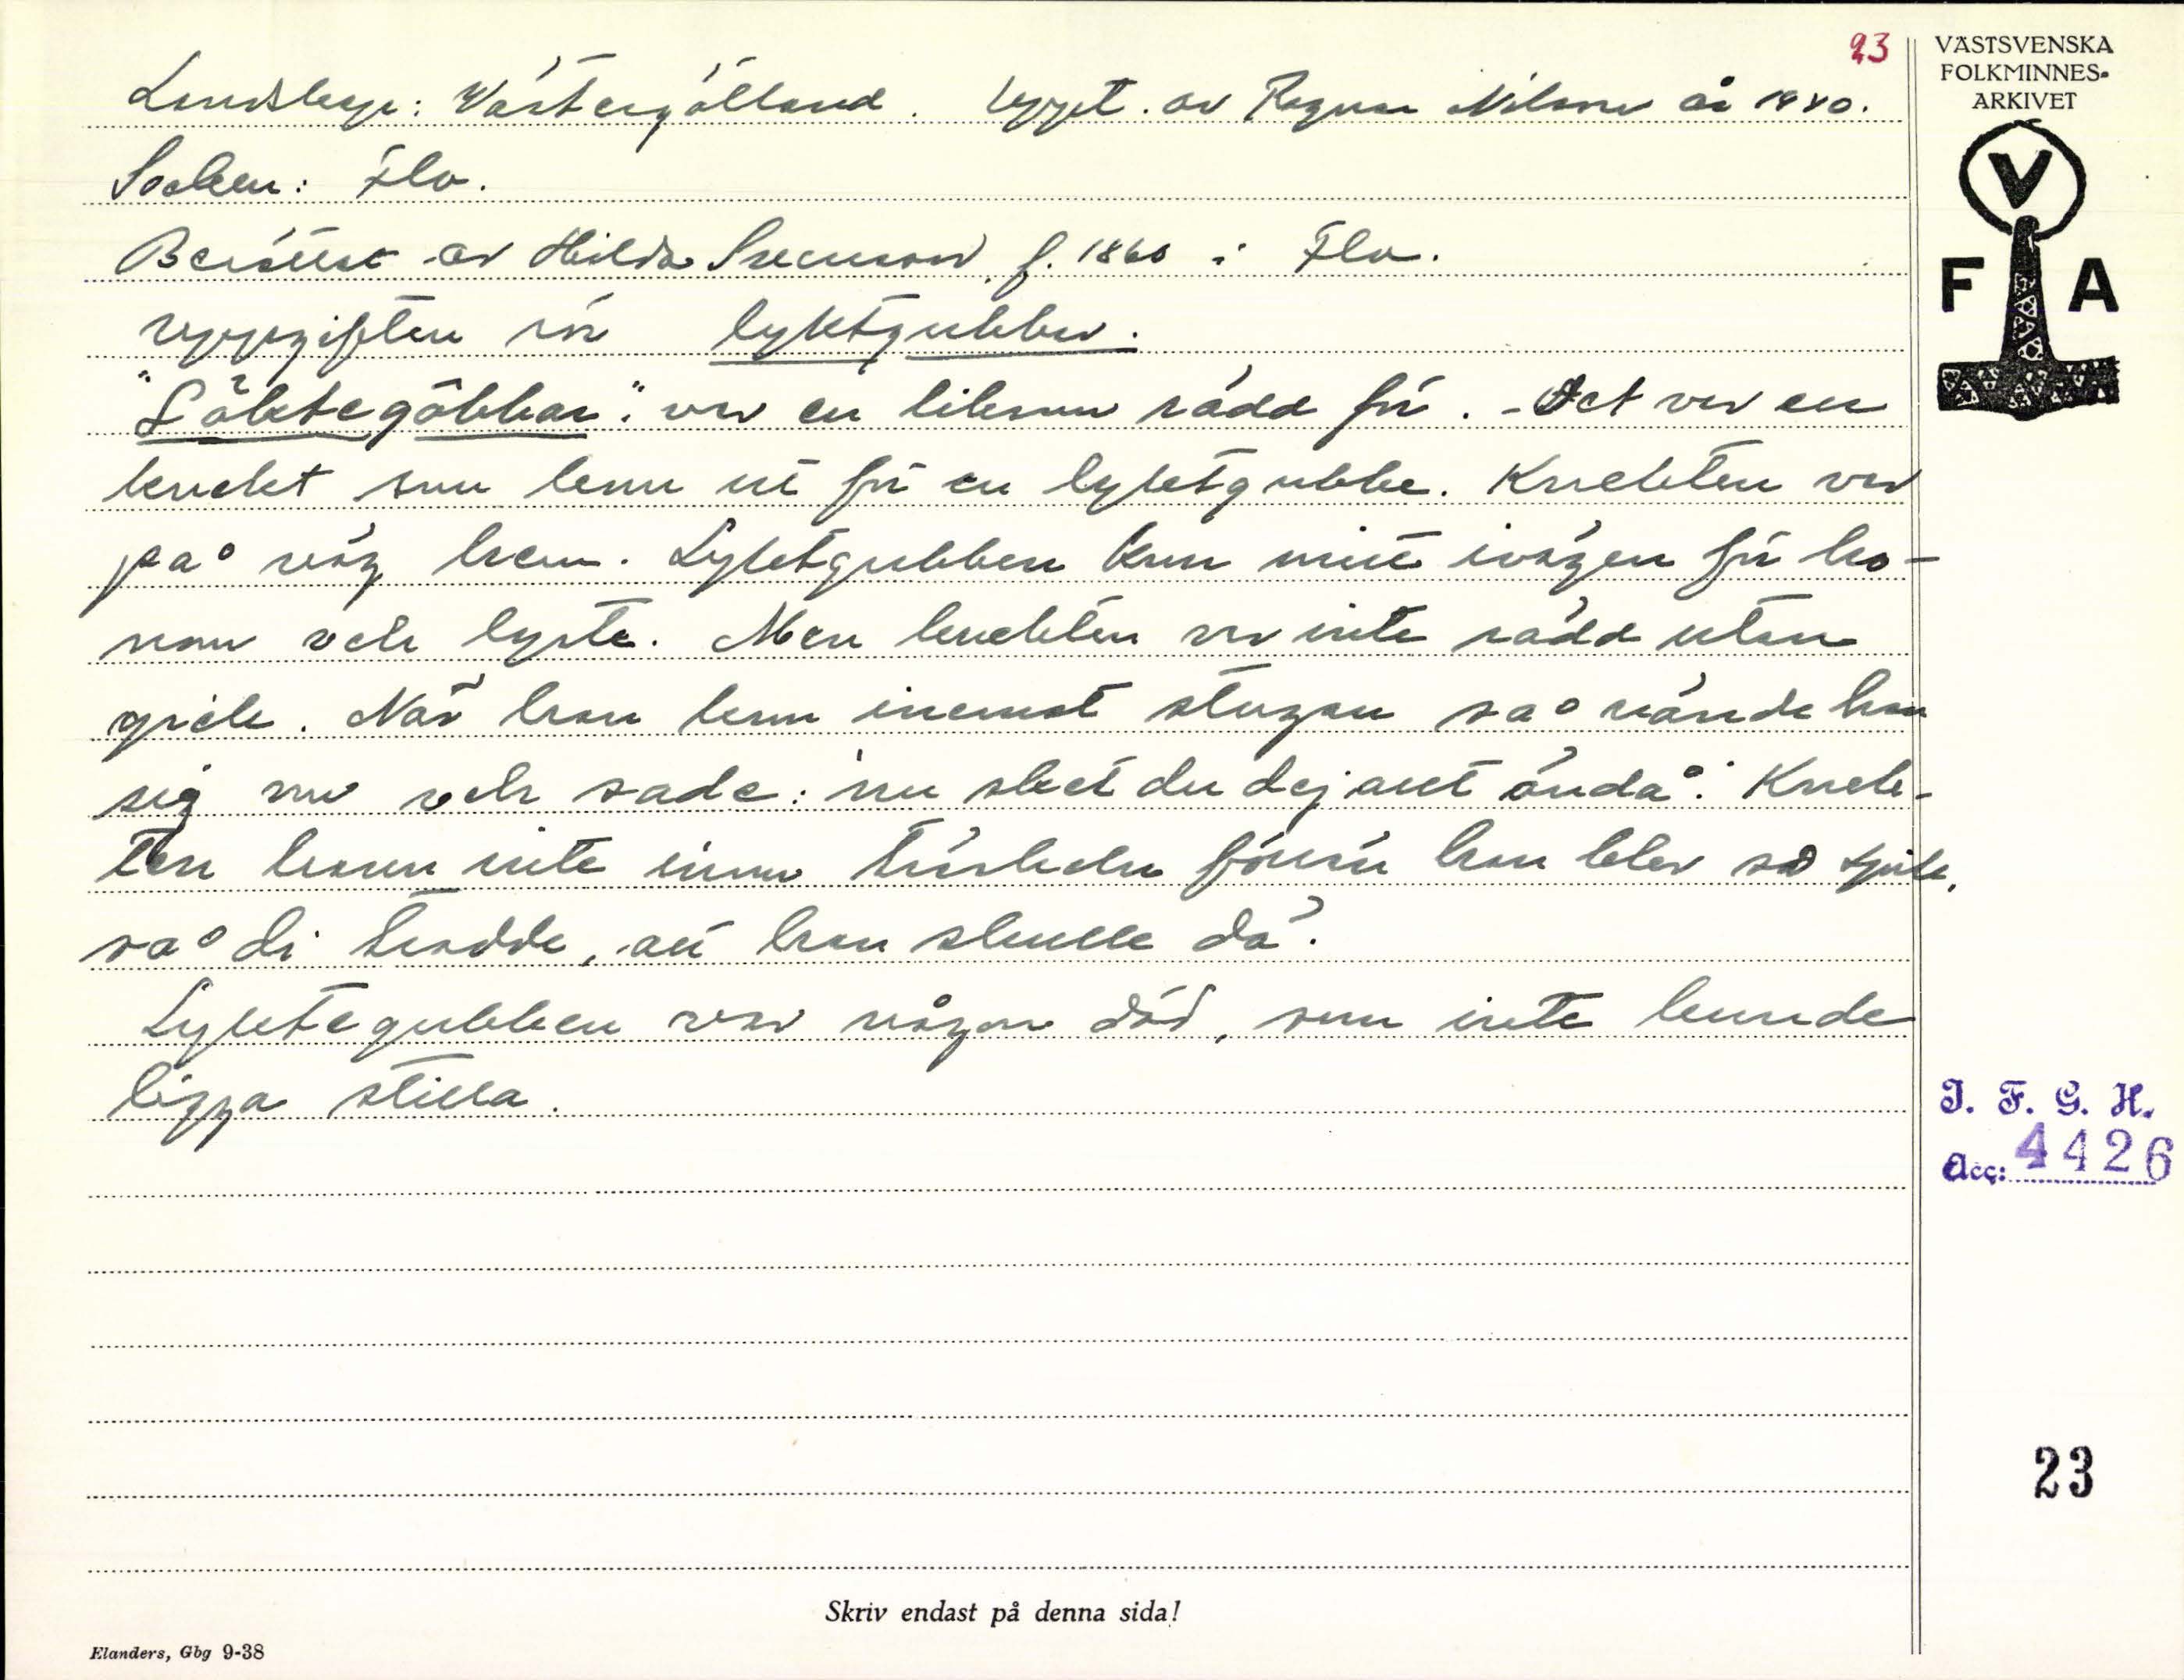 23
Landskap: Västergötland. Uppt. av Ragnar Nilsson år 1940.
Socken: Flo.
Berättat av Hilda Svenson f. 1860 i Flo.
uppgiften rör lyktgubbar.
"Löktegöbbar" var en liksom rädd för. - Det var en
knekt som kom ut för en lyktgubbe. Knekten var
på väg hem. Lyktgubben kom mitt ivägen för ho-
nom och lyste. Men knekten var inte rädd utan
gick. När han kom inemot stugan så vände han
sig om och sade: "nu sket du dej aut ändå". Knek-
ten hann inte innom tröskeln förrän han blev så sjuk,
så di trodde, att han skulle dö.
Lyktegubben var någon död, som inte kunde
ligga stilla.
Skriv endast på denna sida!
Elanders, Gbg 9-38
VÄSTSVENSKA
FOLKMINNES-
ARKIVET
V
F A
I. F. G. H.
Acc: 4426
23